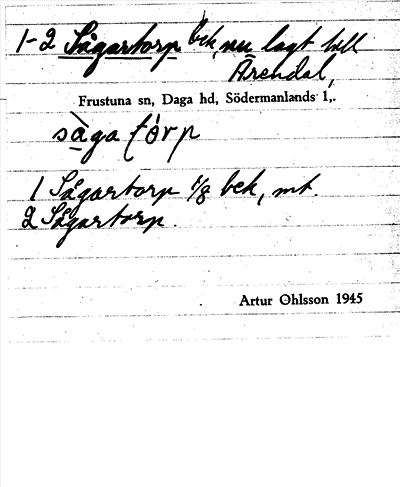 1-2 Sågartorp bek, nu lagt till
Årendal,
Frustuna sn, Daga hd, Södermanlands l,.
sàga tórp
1 Sågartorp 1/8 bek, mt.
2 Sågartorp.
Artur Ohlsson 1945